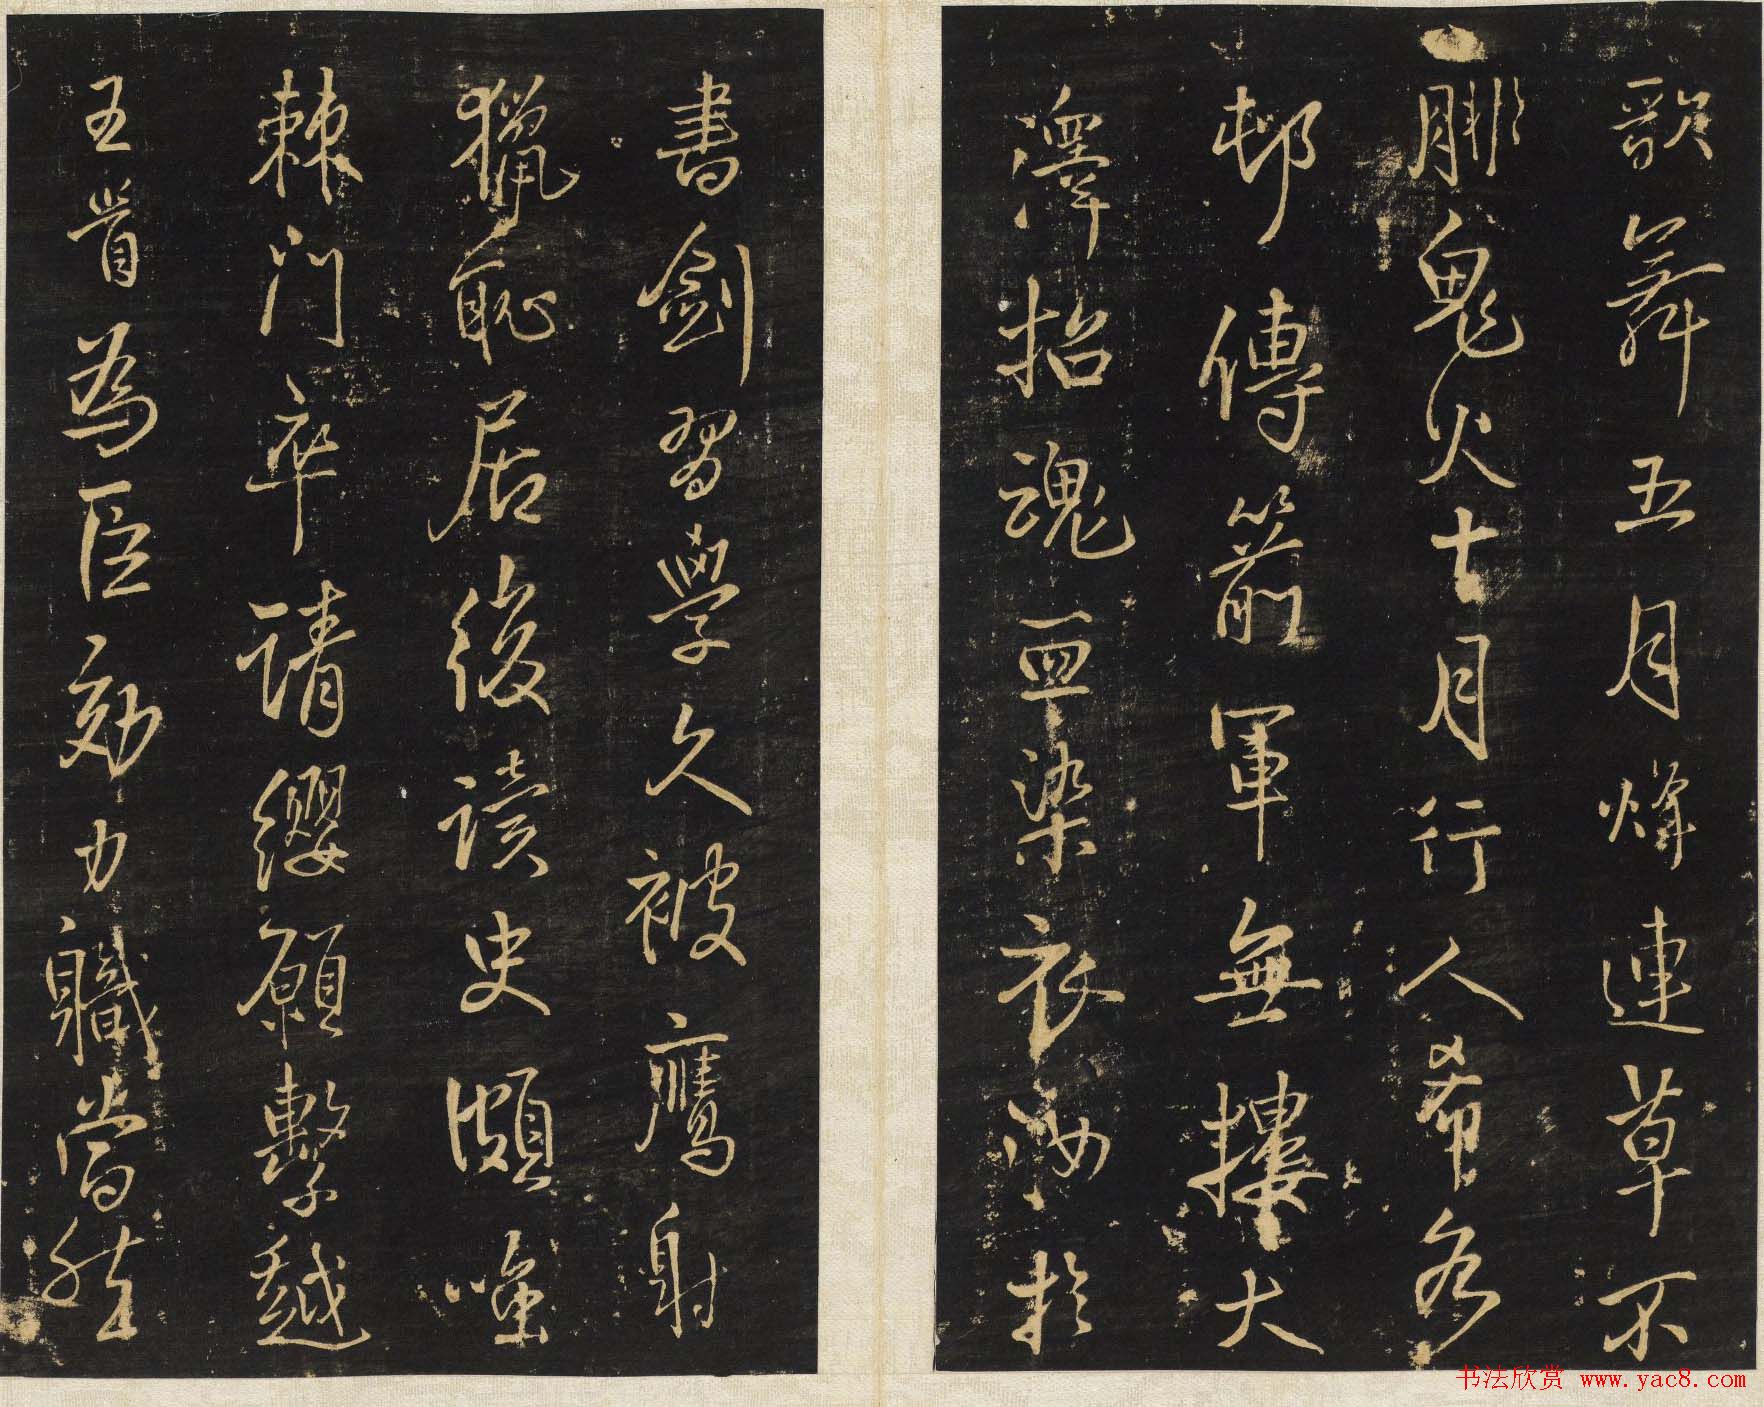 歌舞五月烽連草不
腓鬼火七月行人希各
邨傳箭軍無摟大
澤招魂血染衣汝於
書劍習學久被鷹射
獵恥居後讀史頗唯
棘門卒請纓願繫越
王首為臣効力職當然
书法欣赏 www.yac8.com